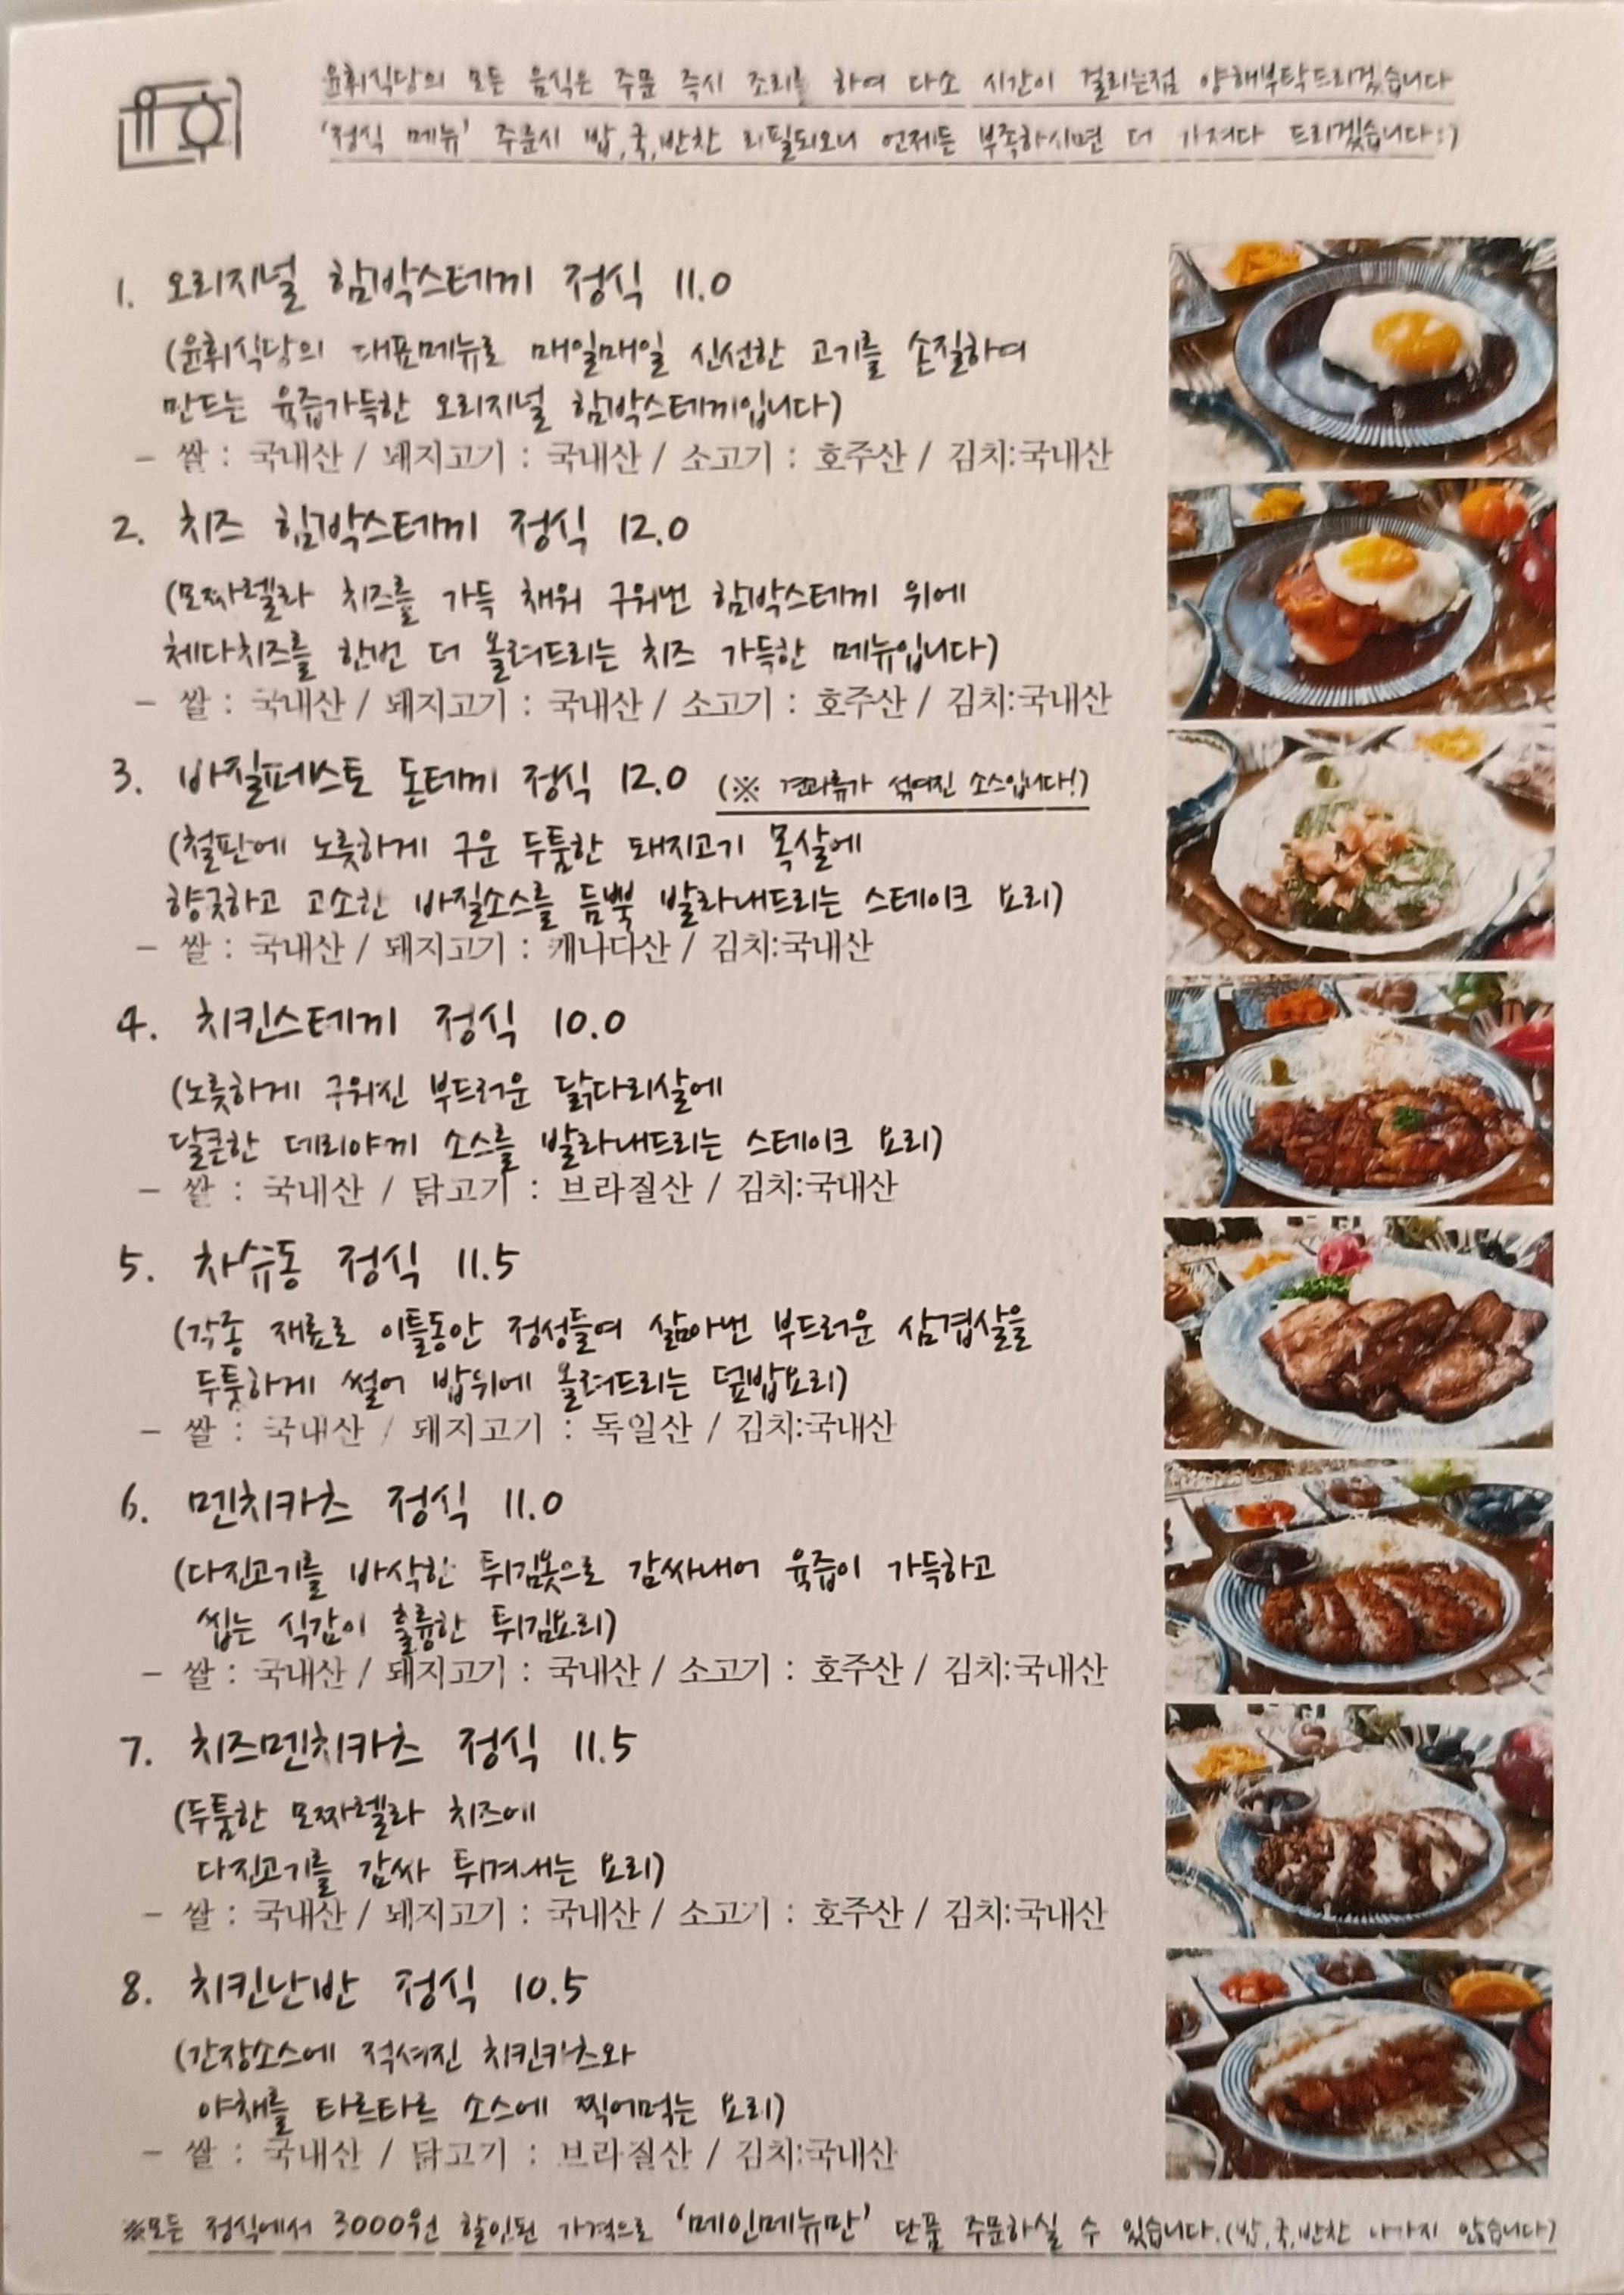 윤휘식당의 모든 음식은 주문 즉시 조리를 하여 다소 시간이 걸리는점 양해부탁드리겠습니다
'정식 메뉴' 주문시 밥,국,반찬 리필되오니 언제든 부족하시면 더 가져다 드리겠습니다:)
1. 오리지널 함박스테끼 정식 11.0
(윤휘식당의 대표메뉴로 매일매일 신선한 고기를 손질하여
만드는 육즙가득한 오리지널 함박스테끼입니다)
- 쌀 : 국내산 / 돼지고기 : 국내산 / 소고기 : 호주산 / 김치:국내산
2. 치즈 함박스테끼 정식 12.0
(모짜렐라 치즈를 가득 채워 구워낸 함박스테끼 위에
체다치즈를 한번 더 올려드리는 치즈 가득한 메뉴입니다)
- 쌀 : 국내산 / 돼지고기 : 국내산 / 소고기 : 호주산 / 김치:국내산
3. 바질페스토 돈테끼 정식 12.0 (※ 견과류가 섞여진 소스입니다!)
(철판에 노릇하게 구운 두툼한 돼지고기 목살에
향긋하고 고소한 바질소스를 듬뿍 발라내드리는 스테이크 요리)
- 쌀 : 국내산 / 돼지고기 : 캐나다산 / 김치:국내산
4. 치킨스테끼 정식 10.0
(노릇하게 구워진 부드러운 닭다리살에
달큰한 데리야끼 소스를 발라내드리는 스테이크 요리)
- 쌀 : 국내산 / 닭고기 : 브라질산 / 김치:국내산
5. 차슈동 정식 11.5
(각종 재료로 이틀동안 정성들여 삶아낸 부드러운 삼겹살을
두툼하게 썰어 밥위에 올려드리는 덮밥요리)
- 쌀 : 국내산 / 돼지고기 : 독일산 / 김치:국내산
6. 멘치카츠 정식 11.0
(다진고기를 바삭한 튀김옷으로 감싸내어 육즙이 가득하고
씹는 식감이 훌륭한 튀김요리)
- 쌀 : 국내산 / 돼지고기 : 국내산 / 소고기 : 호주산 / 김치:국내산
7. 치즈멘치카츠 정식 11.5
(두툼한 모짜렐라 치즈에
다진고기를 감싸 튀겨내는 요리)
- 쌀 : 국내산 / 돼지고기 : 국내산 / 소고기 : 호주산 / 김치:국내산
8. 치킨난반 정식 10.5
(간장소스에 적셔진 치킨카츠와
야채를 타르타르 소스에 찍어먹는 요리)
- 쌀 : 국내산 / 닭고기 : 브라질산 / 김치:국내산
※모든 정식에서 3000원 할인된 가격으로 '메인메뉴만' 단품 주문하실 수 있습니다.(밥,국,반찬 나가지 않습니다)